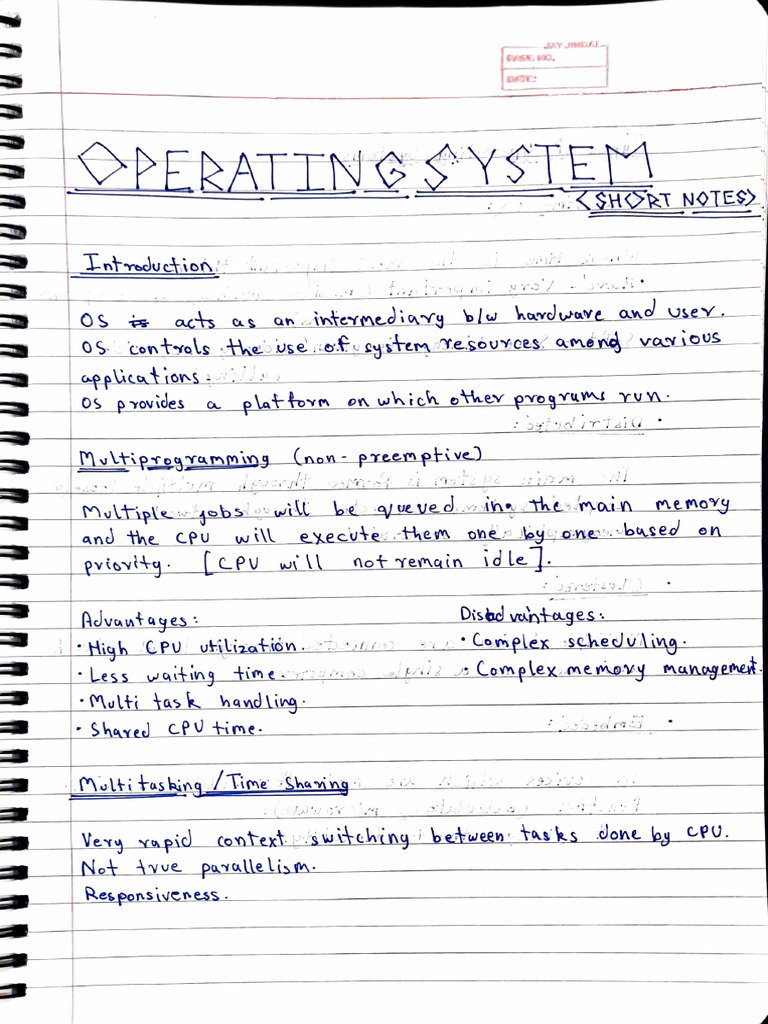 PAGE NO.
DATE:
OPERATING SYSTEM
<SHORT NOTES>
Introduction
OS is acts as an intermediary b/w hardware and user.
OS controls the use of system resources among various
applications.
OS provides a platform on which other programs run.
Multiprogramming (non-preemptive)
Multiple jobs will be queued in the main memory
and the CPU will execute them one by one based on
priority. [CPU will not remain idle].
Advantages:
• High CPU utilization.
• Less waiting time.
• Multi task handling.
• Shared CPU time.
Disadvantages:
• Complex scheduling.
• Complex memory management.
Multitasking / Time Sharing
Very rapid context switching between tasks done by CPU.
Not true parallelism.
Responsiveness.